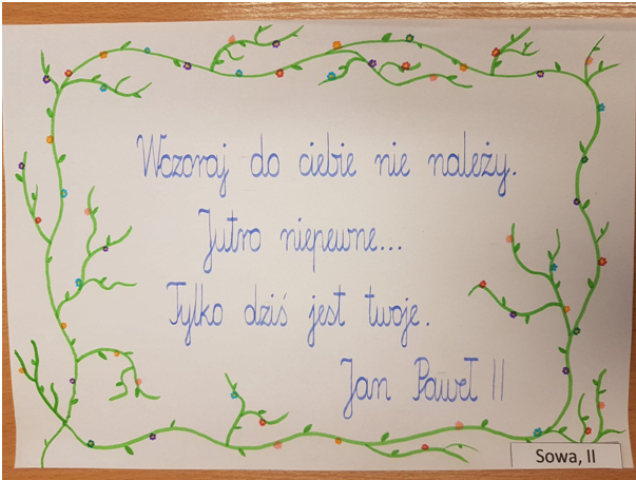 Wczoraj do ciebie nie należy.
Jutro niepewne...
Tylko dziś jest twoje.
Jan Paweł II
Sowa, II